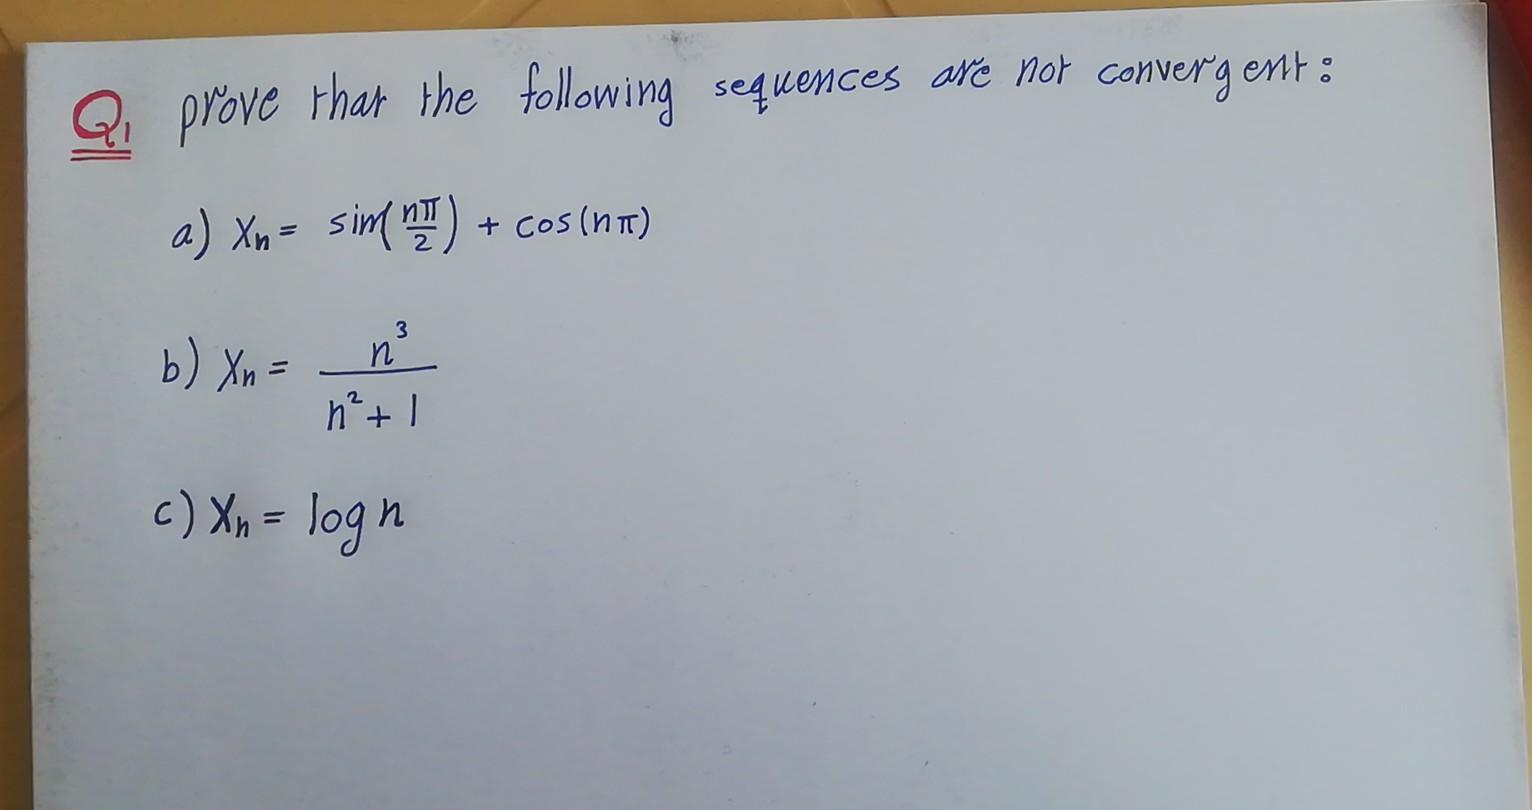 Q1 prove that the following sequences are not convergent:
a) Xn = sin(nπ/2) + cos(nπ)
b) Xn = n³/(n²+1)
c) Xn = log n